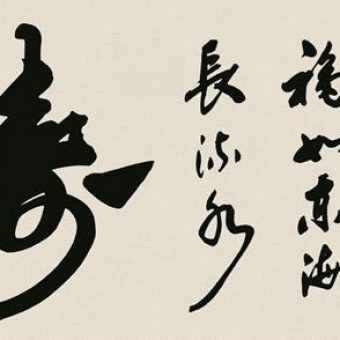 福如東海
長流水
寿